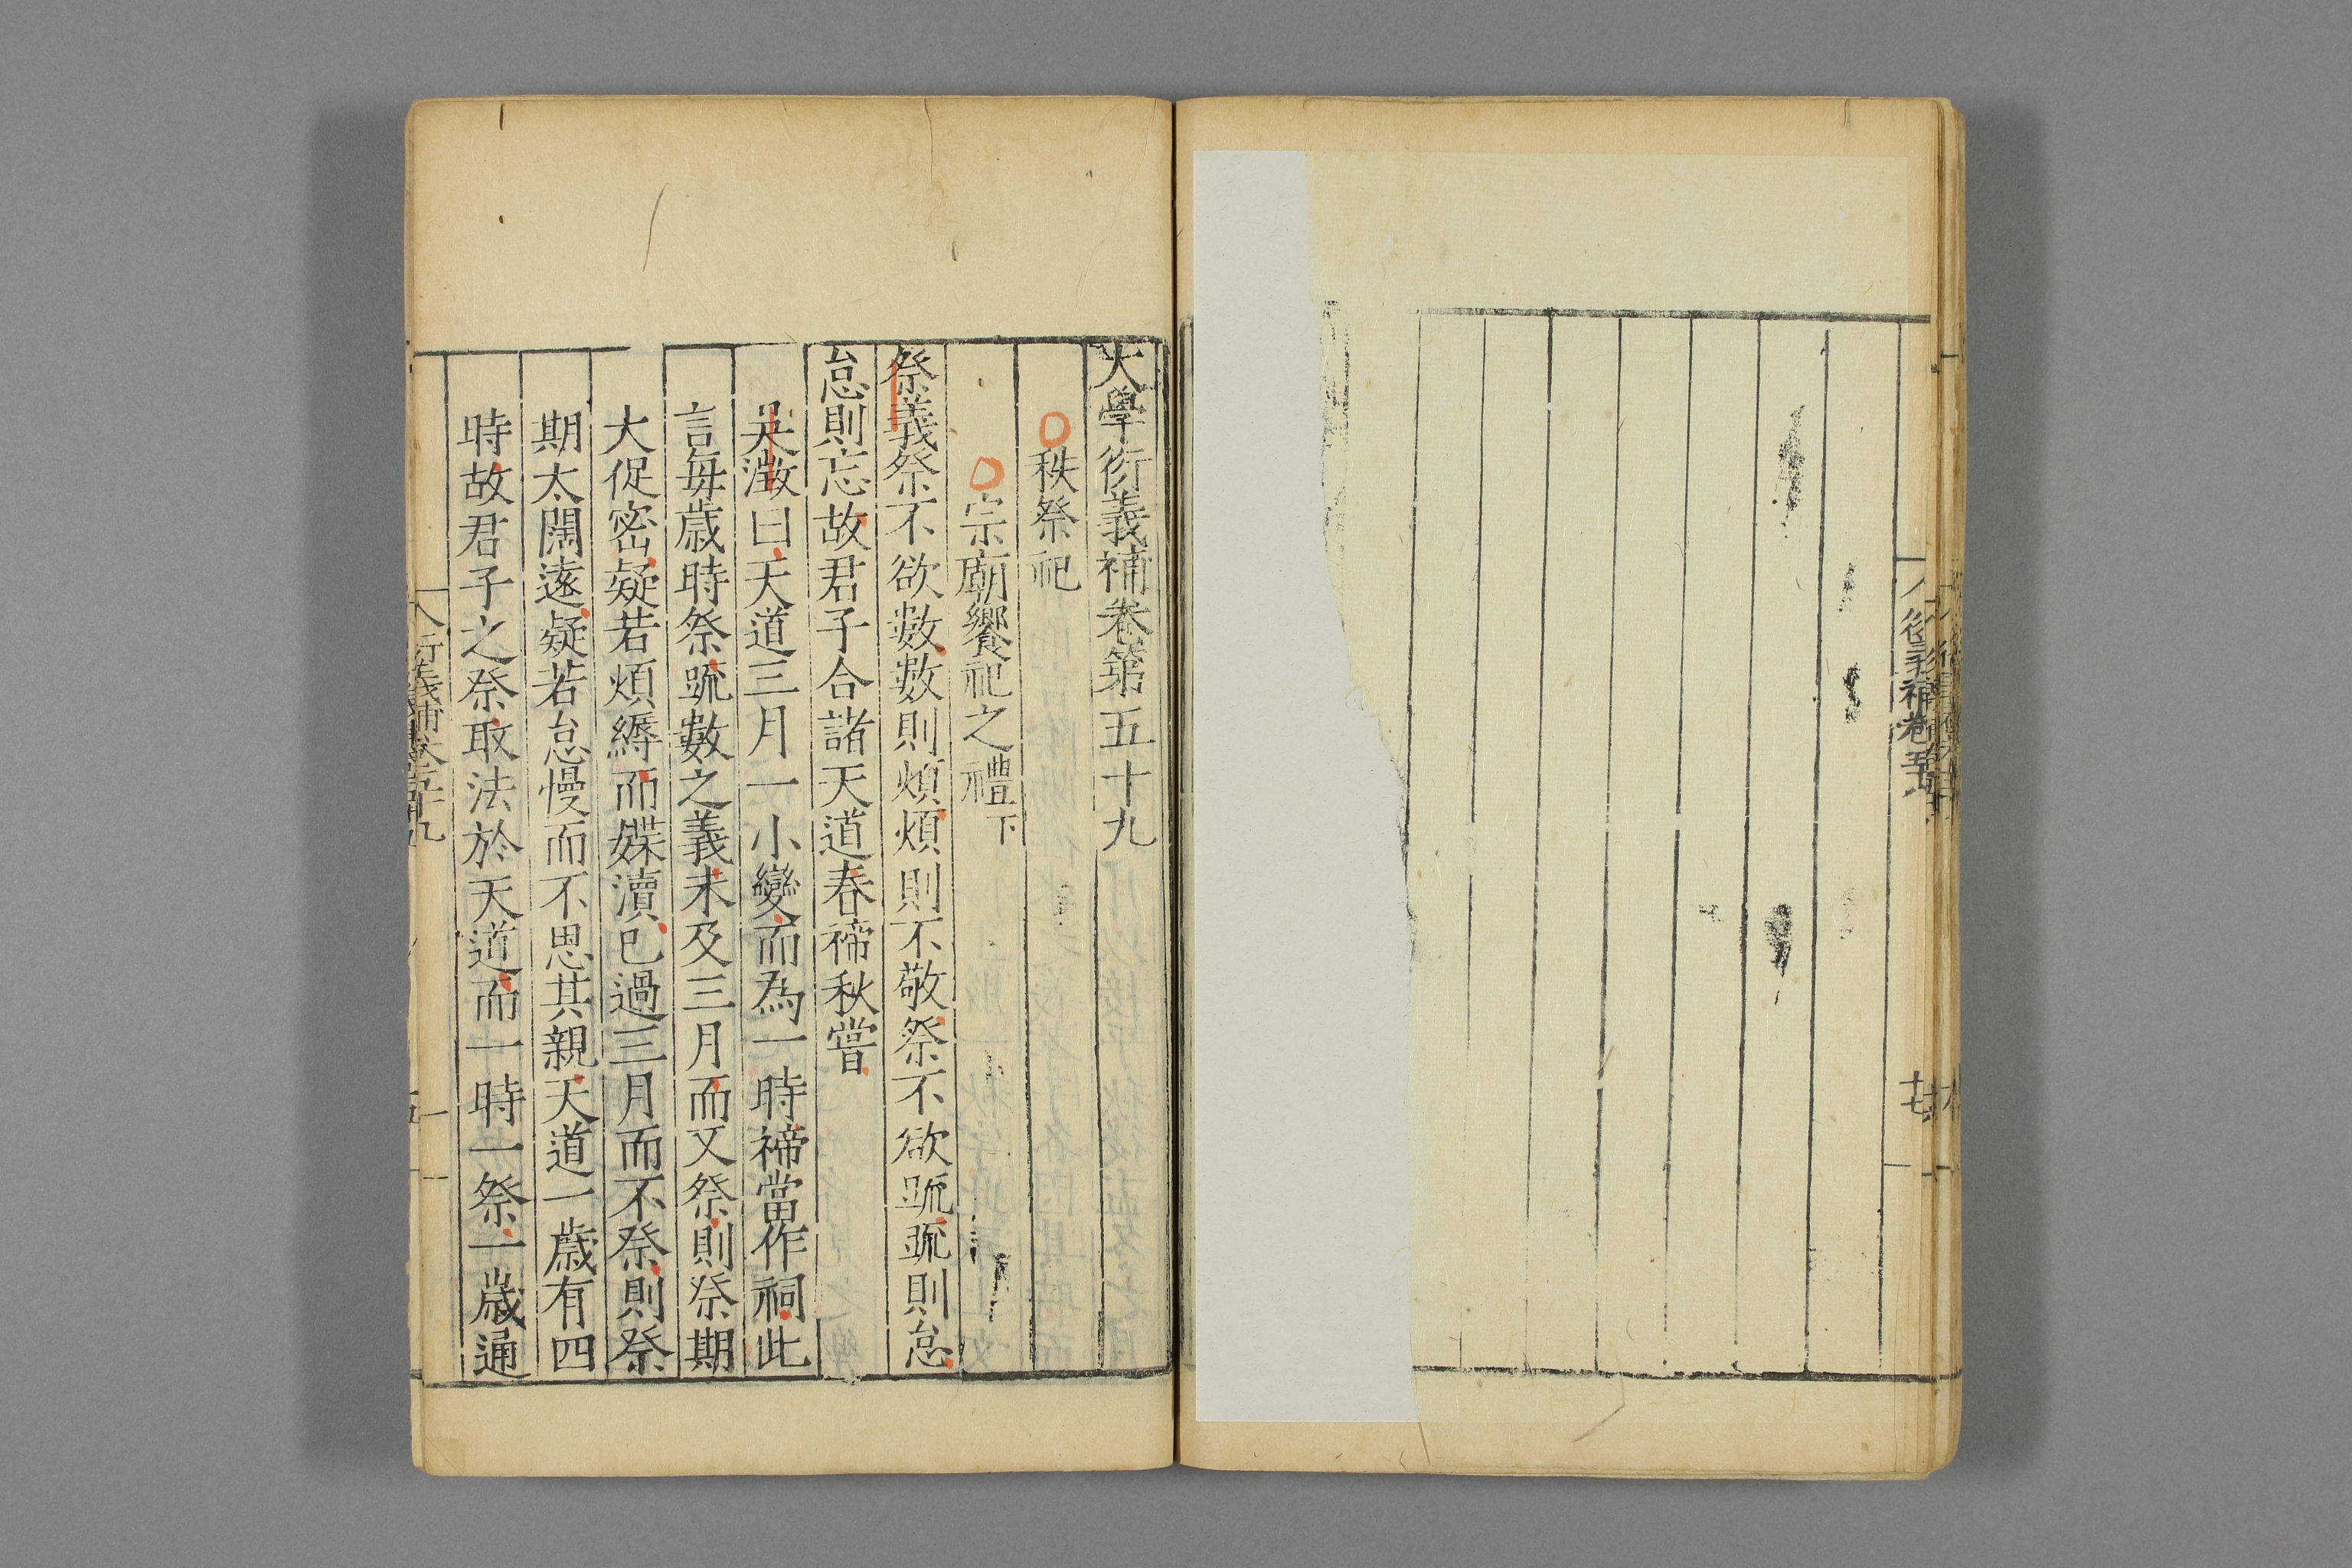 大學衍義補卷第五十九
秩祭祀
宗廟饗祀之禮下
祭義祭不欲數數則煩煩則不敬祭不欲疏疏則怠
怠則忘故君子合諸天道春禘秋嘗
吳澂曰天道三月一小變而為一時禘當作祠此
言每歲時祭疏數之義未及三月而又祭則祭期
大促密疑若煩縟而媟瀆已過三月而不祭則祭
期太闊遠疑若怠慢而不思其親天道一歲有四
時故君子之祭取法於天道而一時一祭一歲通